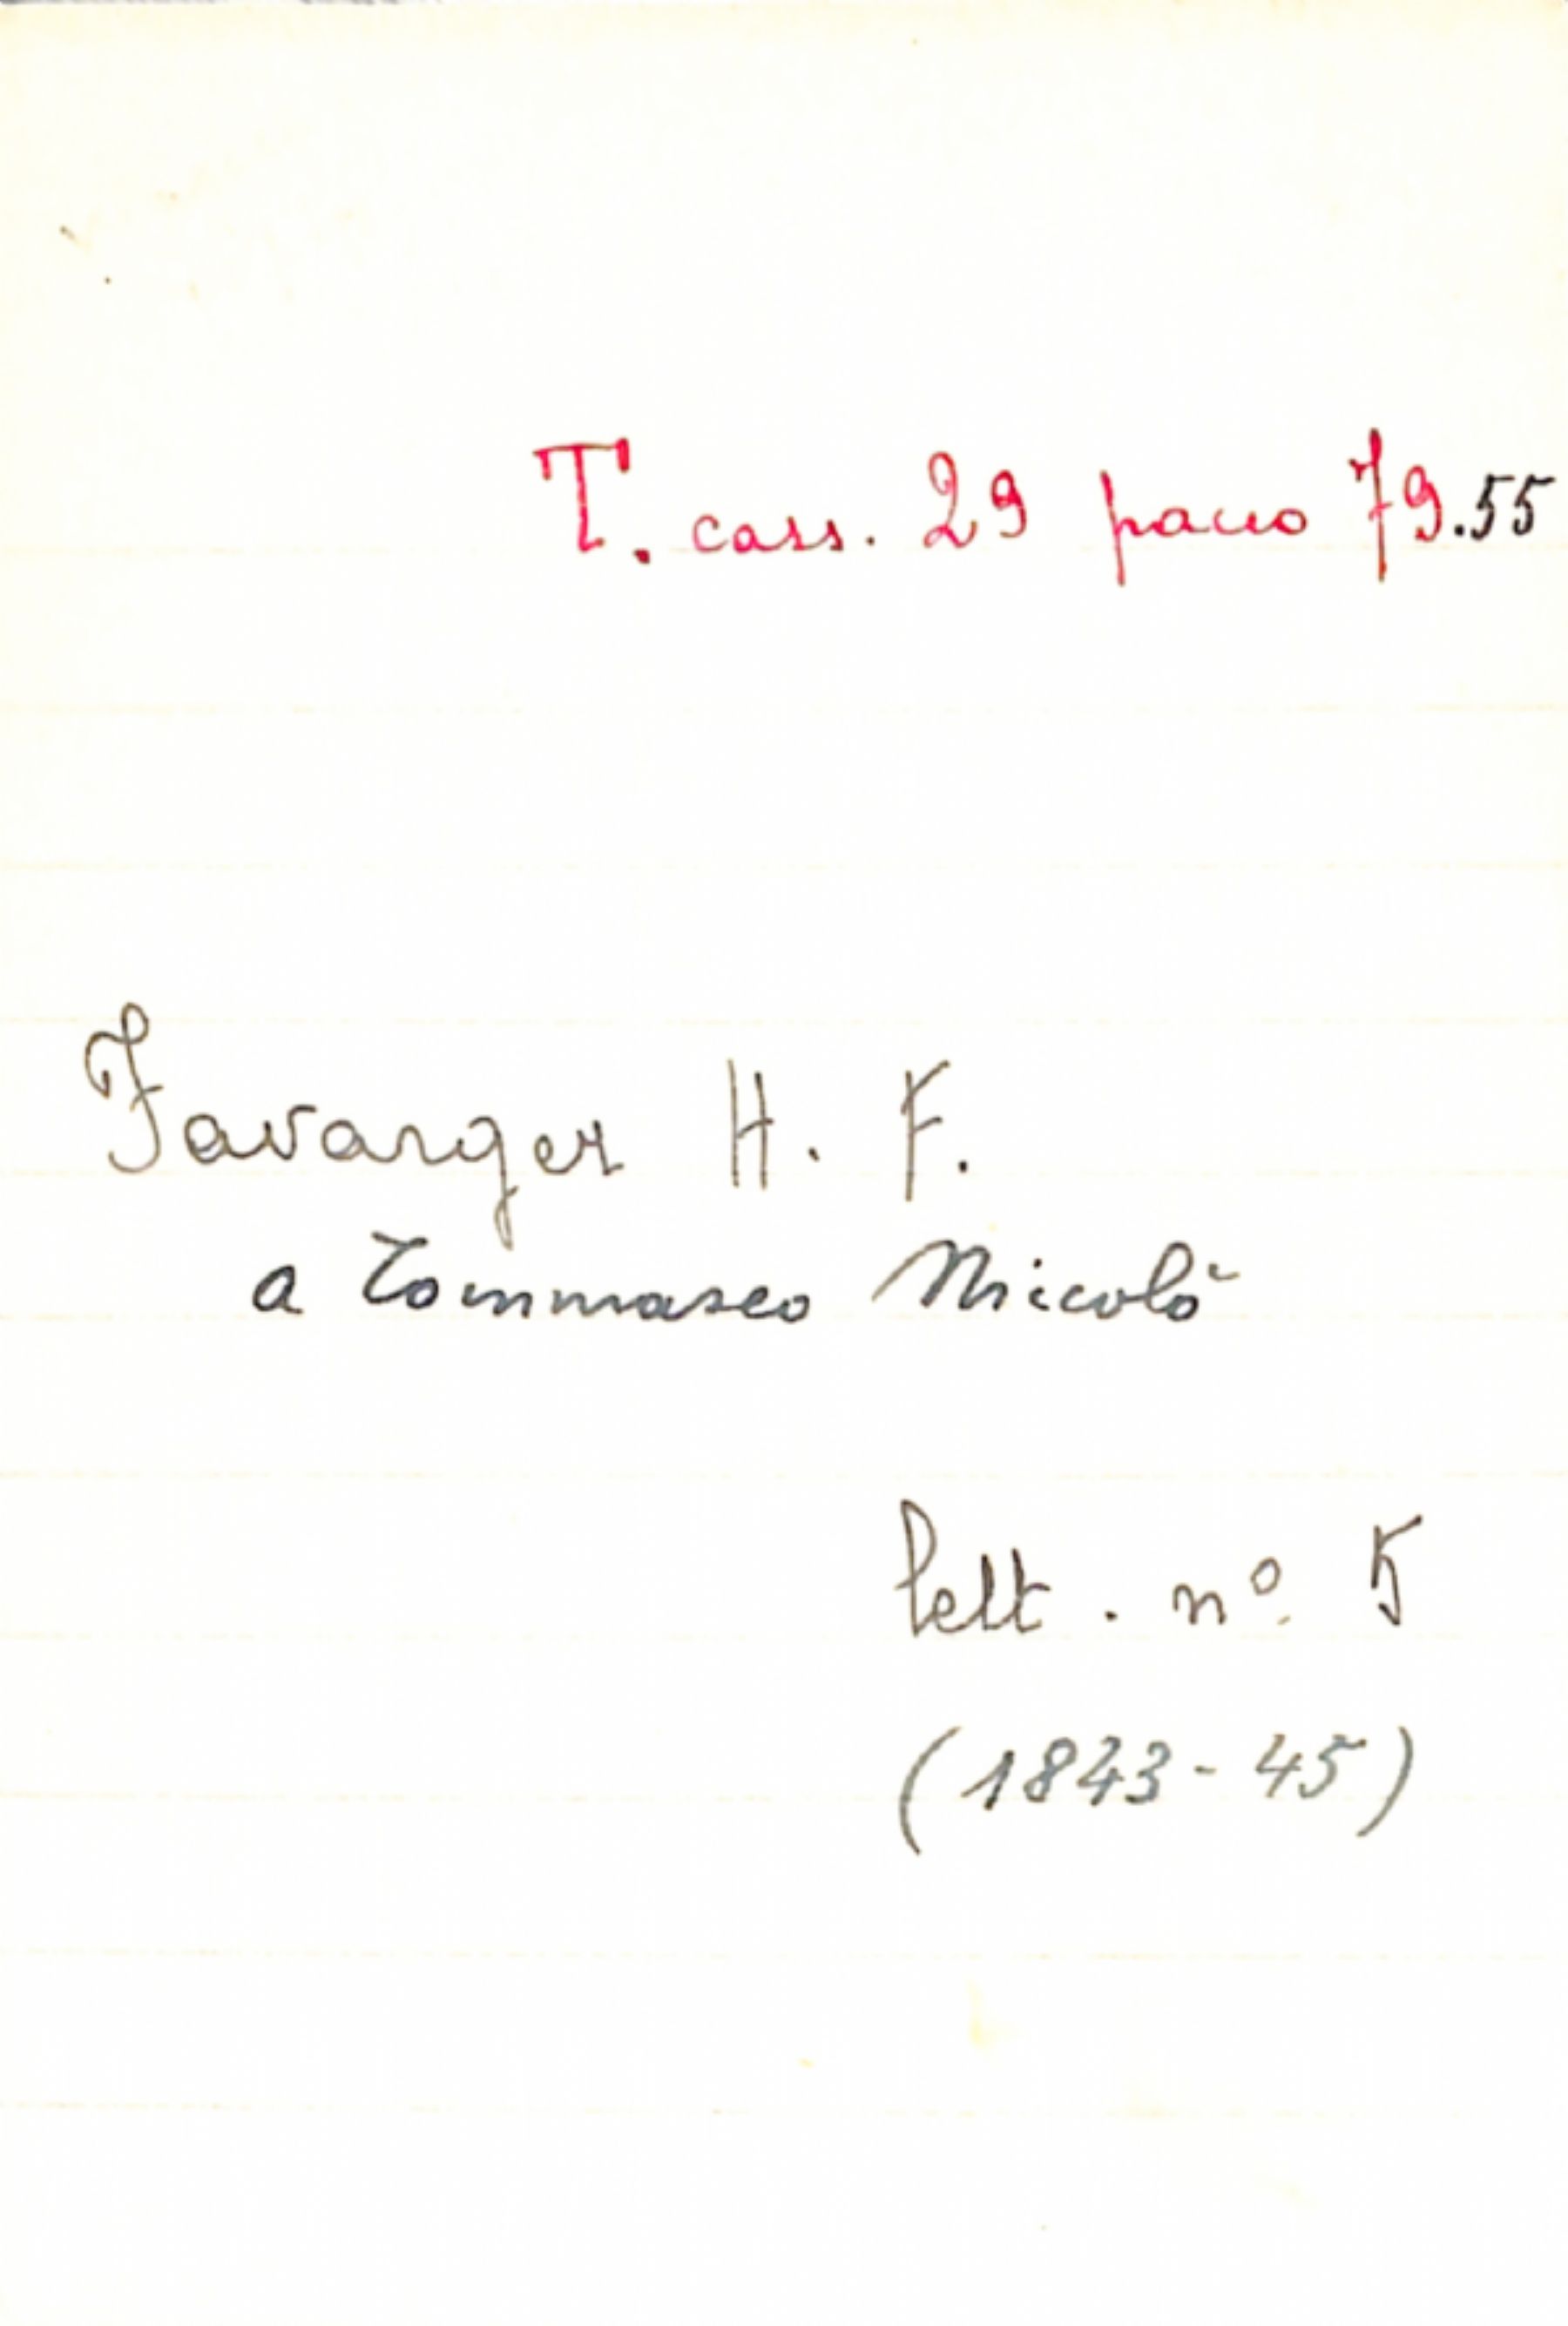 T. cass. 29 pacco 79.55
Favarger H. F.
a Tommaseo Nicolò
lett. nº 5
(1843-45)